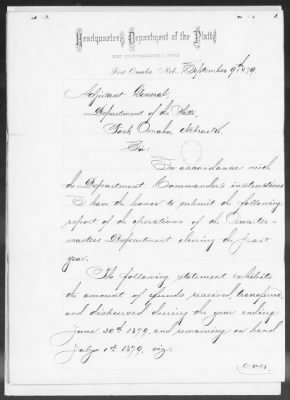 Headquarters Department of the Platte
Fort Omaha, Neb., September 9th 1879.
Adjutant General,
Department of the Platte,
Fort Omaha, Nebraska.
Sir:
In accordance with
the Department Commander's instructions
I have the honor to submit the following
report of the operations of the Quarter-
masters Department during the past
year.
The following statement exhibits
the amount of funds received, transferred,
and disbursed during the year ending
June 30th 1879, and remaining on hand
July 1st 1879, viz:
(over)